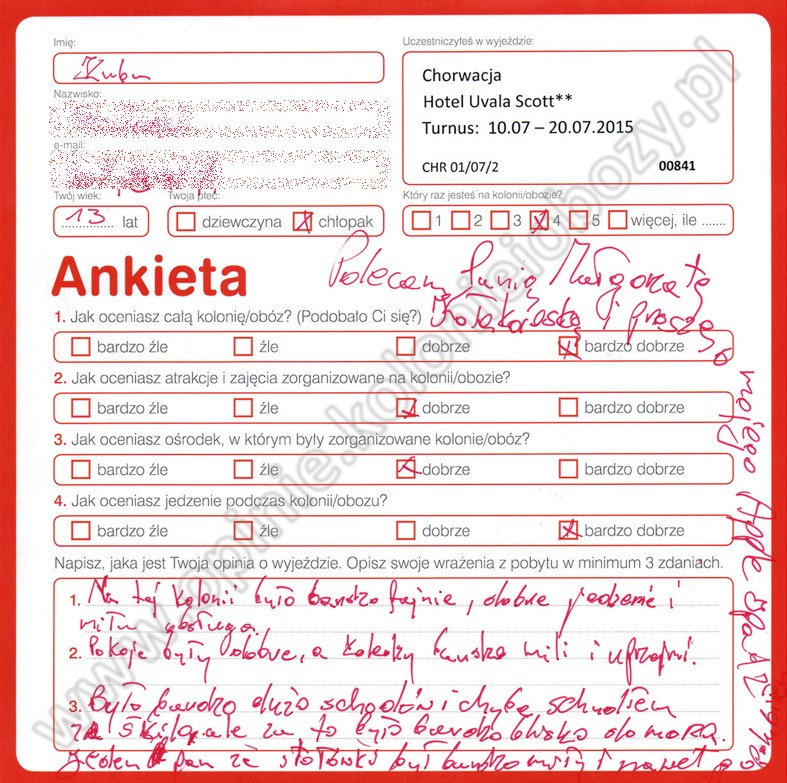 Imię:
Kuba
Nazwisko:
e-mail:
Twój wiek:
13 lat
Twoja płeć:
dziewczyna chłopak
Uczestniczyłeś w wyjeździe:
Chorwacja
Hotel Uvala Scott**
Turnus: 10.07 – 20.07.2015
CHR 01/07/2 00841
Który raz jesteś na kolonii/obozie?
1 2 3 4 5 więcej, ile .......
Ankieta
Polecam Panią Małgorzatę
i proszę o
mojego Apple
1. Jak oceniasz całą kolonię/obóz? (Podobało Ci się?)
bardzo źle źle dobrze bardzo dobrze
2. Jak oceniasz atrakcje i zajęcia zorganizowane na kolonii/obozie?
bardzo źle źle dobrze bardzo dobrze
3. Jak oceniasz ośrodek, w którym były zorganizowane kolonie/obóz?
bardzo źle źle dobrze bardzo dobrze
4. Jak oceniasz jedzenie podczas kolonii/obozu?
bardzo źle źle dobrze bardzo dobrze
Napisz, jaka jest Twoja opinia o wyjeździe. Opisz swoje wrażenia z pobytu w minimum 3 zdaniach.
1. Na tej kolonii było bardzo fajnie, dobre jedzenie i
miła obsługa.
2. Pokoje były dobre, a koledzy bardzo mili i uprzejmi.
3. Było bardzo dużo schodów i chyba schudłem
ale za to było bardzo blisko do morza.
Jeden pan ze stołówki był bardzo miły i nawet
www.opinie.kolonieiobozy.pl